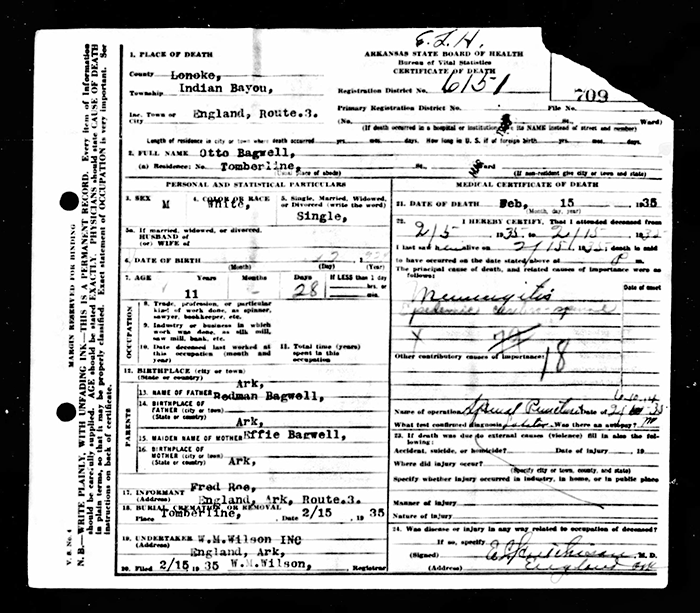 E. L. H.
ARKANSAS STATE BOARD OF HEALTH
Bureau of Vital Statistics
CERTIFICATE OF DEATH
1. PLACE OF DEATH
County Lonoke,
Township Indian Bayou,
Registration District No. 6151
709
Inc. Town or City England, Route.3.
Primary Registration District No. File No.
(No. St. Ward)
(If death occurred in a hospital or institution its NAME instead of street and number)
Length of residence in city or town where death occurred yrs. mos. days. How long in U. S. if of foreign birth yrs. mos. days.
2. FULL NAME Otto Bagwell,
(a) Residence: No. Tomberline, St. Ward
(Usual place of abode) (If non-resident give city or town and state)
PERSONAL AND STATISTICAL PARTICULARS
3. SEX M
4. COLOR OR RACE White,
5. Single, Married, Widowed, or Divorced (write the word)
Single,
5a. If married, widowed, or divorced.
HUSBAND of
(or) WIFE of
6. DATE OF BIRTH
(Month) (Day) (Year)
7. AGE Years Months Days If LESS than 1 day
11 28 hrs. or min.
OCCUPATION
8. Trade, profession, or particular kind of work done, as spinner, sawyer, bookkeeper, etc.
9. Industry or business in which work was done, as silk mill, saw mill, bank, etc.
10. Date deceased last worked at this occupation (month and year)
11. Total time (years) spent in this occupation
12. BIRTHPLACE (city or town)
(State or country) Ark,
PARENTS
13. NAME OF FATHER Redman Bagwell,
14. BIRTHPLACE OF FATHER (city or town)
(State or country) Ark,
15. MAIDEN NAME OF MOTHER Effie Bagwell,
16. BIRTHPLACE OF MOTHER (city or town)
(State or country) Ark,
17. INFORMANT Fred Roe,
(Address) England, Ark, Route.3.
18. BURIAL CREMATION OR REMOVAL
Place Tomberline, Date 2/15 1935
19. UNDERTAKER W.M.Wilson INC
England, Ark,
20. Filed 2/15 1935 W.M.Wilson, Registrar
MEDICAL CERTIFICATE OF DEATH
21. DATE OF DEATH Feb, 15 1935
(Month, day, year)
22. I HEREBY CERTIFY, That I attended deceased from
2/5 1935 to 2/15 1935
I last saw alive on 2/15 1935 death is said
to have occurred on the date stated above at 8 m.
The principal cause of death, and related causes of importance were as follows:
Date of onset
Meningitis
Epidemic cerebro spinal
X
18
Other contributary causes of importance:
Name of operation Spinal Puncture Date of
What test confirmed diagnosis Was there an autopsy?
23. If death was due to external causes (violence) fill in also the following:
Accident, suicide, or homicide? Date of injury 19
Where did injury occur?
(Specify city or town, county, and state)
Specify whether injury occurred in industry, in home, or in public place
Manner of injury
Nature of injury
24. Was disease or injury in any way related to occupation of deceased?
If so, specify
(Signed) M. D.
(Address) England Ark
V. B. No. 4
MARGIN RESERVED FOR BINDING
N. B.—WRITE PLAINLY, WITH UNFADING INK—THIS IS A PERMANENT RECORD. Every item of Information should be carefully supplied. AGE should be stated EXACTLY. PHYSICIANS should state CAUSE OF DEATH in plain terms, so that it may be properly classified. Exact statement of OCCUPATION is very important. See instructions on back of certificate.